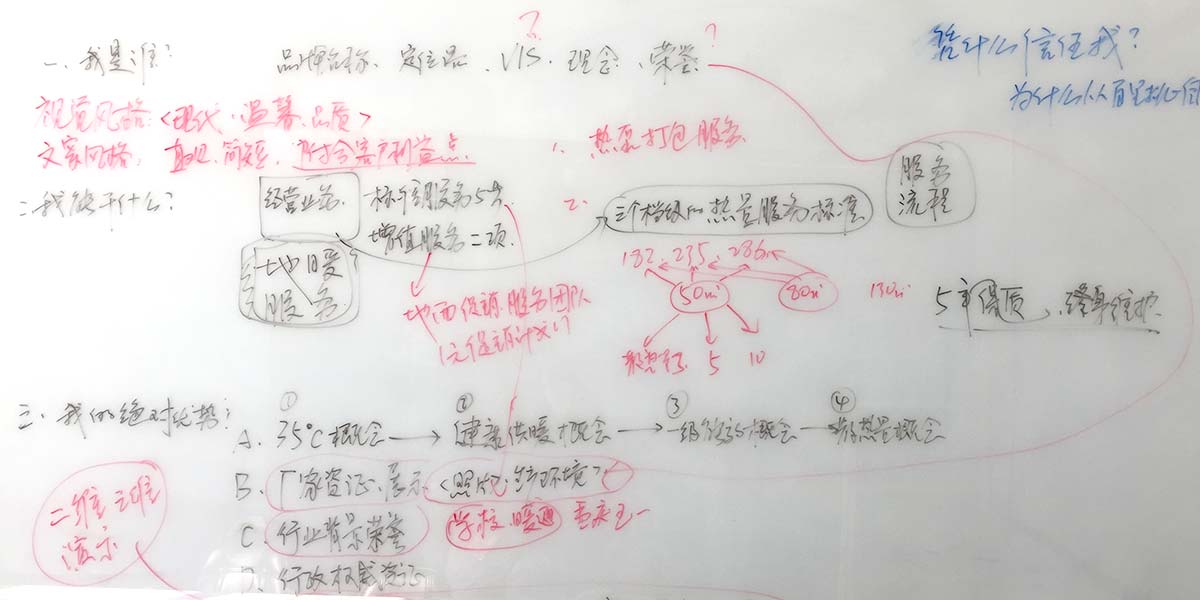 一、我是谁？ 品牌名称、定位、VIS、理念、荣誉 ?
给什么信任我？
为什么从百里挑一
视觉风格：<现代、温馨、品质>
文案风格，直观、简短、符合客户利益点
1、热泵打包服务
服务流程
二、我能干什么？ 经营业务 标准服务5步
增值服务二项
2、三个档级的热量服务标准
地暖？服务
182、235、286
50㎡ 80㎡ 130㎡
5年保质、终身维护
地面促销、服务团队
1元促销计划！？
5 10
三、我的绝对优势：
A、① 35℃概念 → ② 健康供暖概念 → ③ 一级能效概念 → ④ 散热量概念
B、厂家资证、展示<照片、生产环境>
C、行业背景荣誉 学校、暖通
D、行政权威资证
二维三维演示